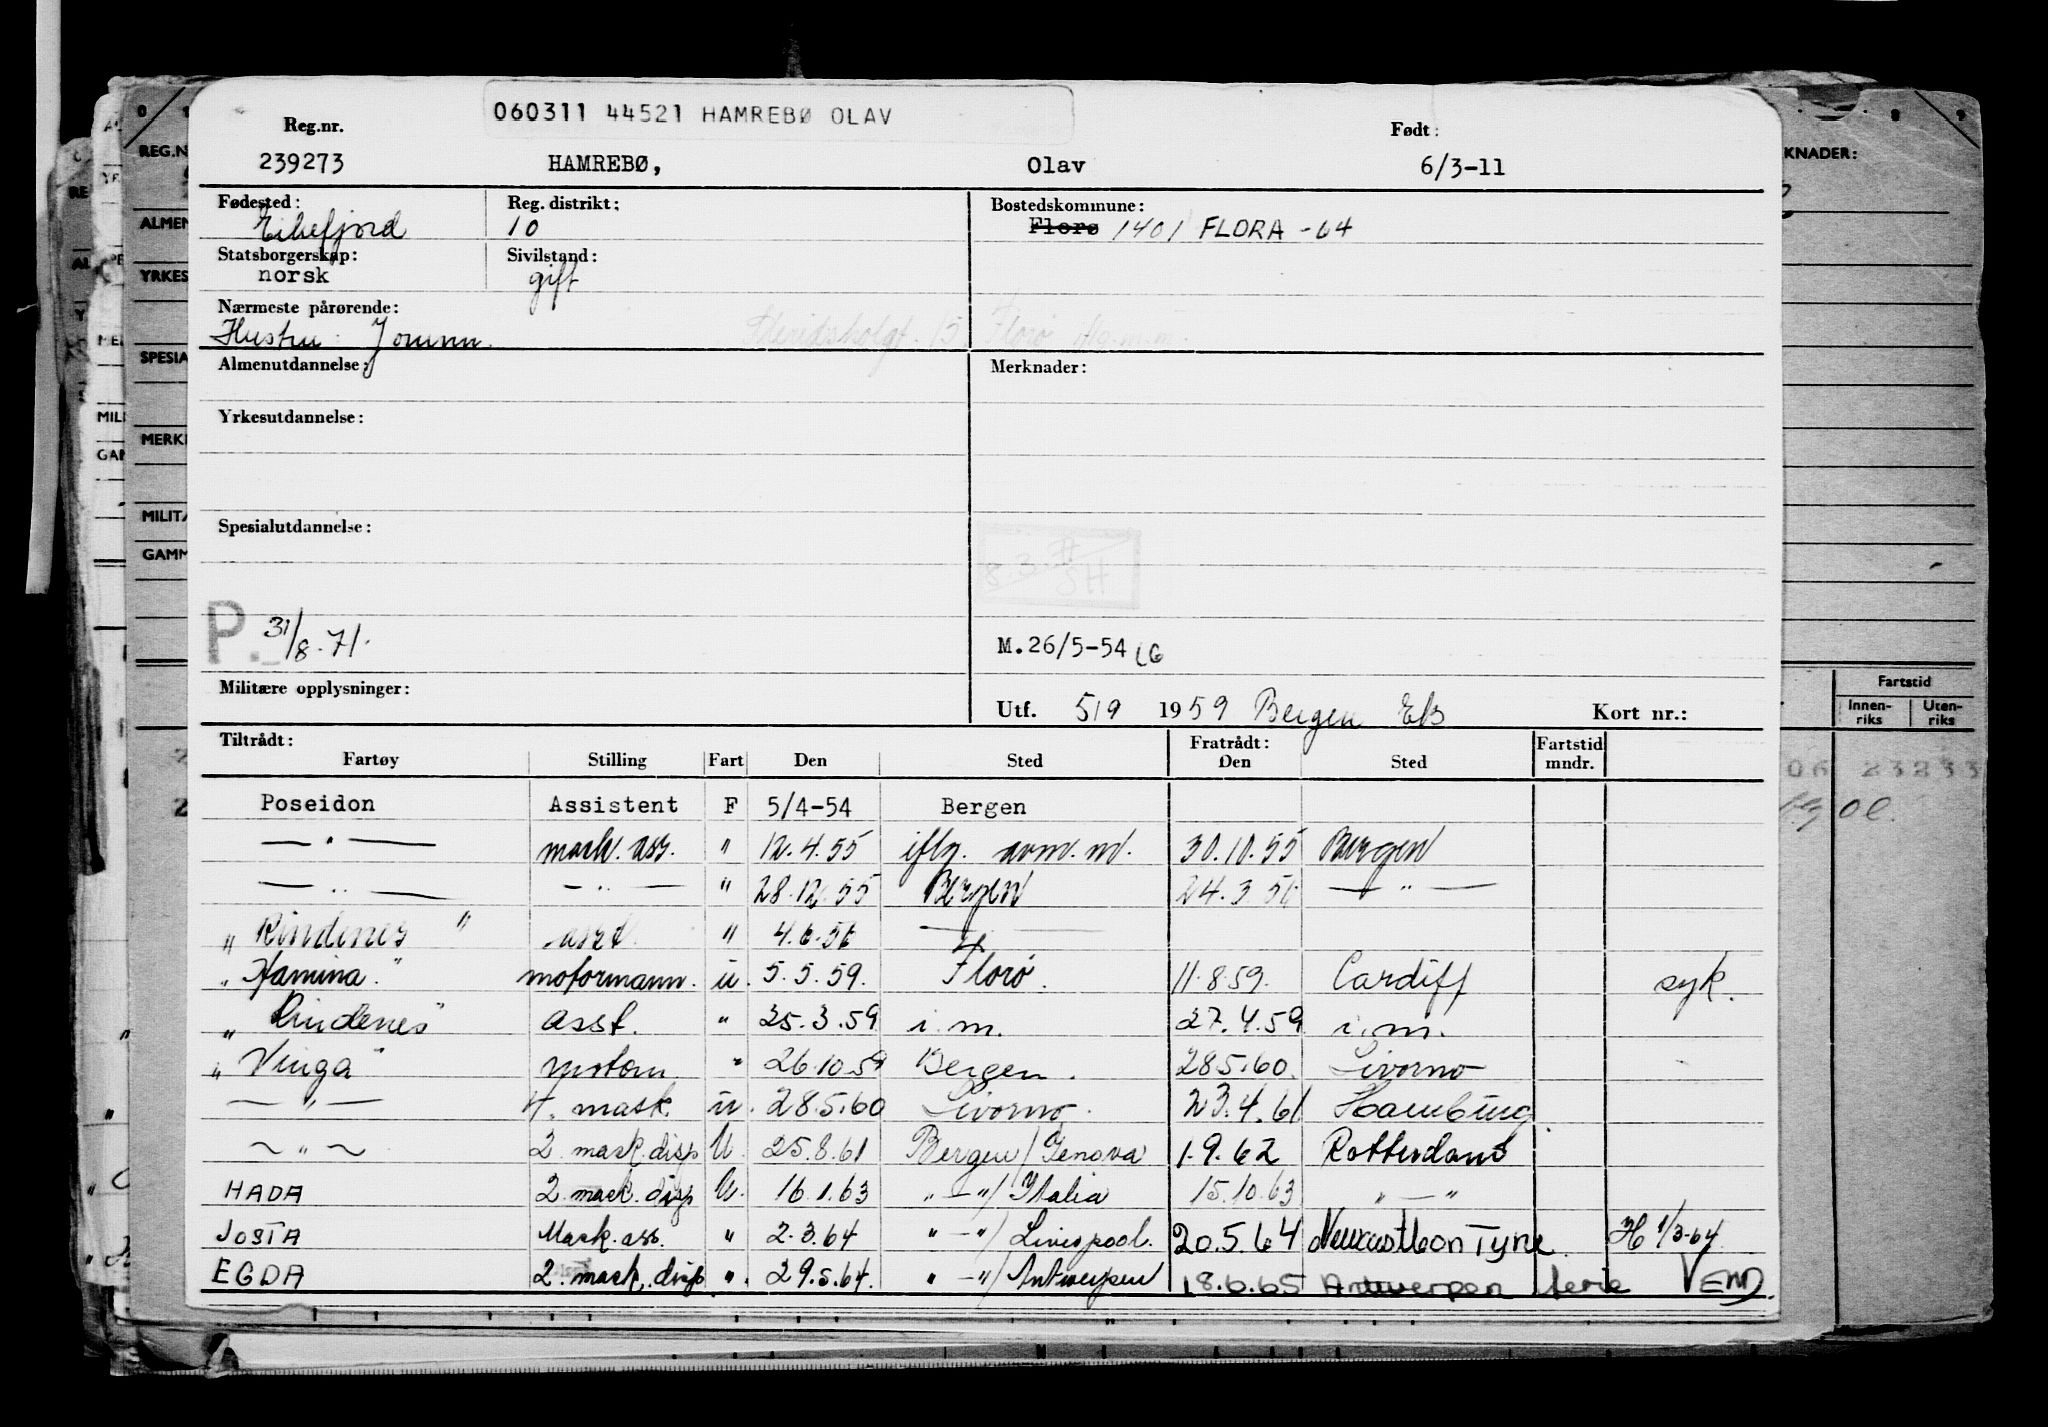 060311 44521 HAMREBØ OLAV
Reg.nr. Født:
239273 HAMREBØ, Olav 6/3-11
Fødested: Reg. distrikt: Bostedskommune:
Eikefjord 10 Florø 1401 FLORA -64
Statsborgerskap: Sivilstand:
norsk gift
Nærmeste pårørende:
Hustru: Jorunn. 15 Florø
Almenutdannelse: Merknader:
Yrkesutdannelse:
Spesialutdannelse:
8.3. SH
P. 31/8-71. M.26/5-54 LG
Militære opplysninger:
Utf. 5/9 1959 Bergen Kort nr.:
Tiltrådt: Fratrådt: Fartstid
Fartøy Stilling Fart Den Sted Den Sted mndr.
Poseidon Assistent F 5/4-54 Bergen
— " — mask. ass. " 12.4.55 iflg. avm. m. 30.10.55 Bergen
— " — — " — " 28.12.55 Bergen 24.3.56 — " —
" Rindenes " asst. " 4.6.56 —
" Hamina " motormann. u. 5.5.59. Florø. 11.8.59. Cardiff syk.
" Rindenes " asst. " 25.3.59 i.m. 27.4.59 i.m.
" Vinga " motorm. " 26.10.59 Bergen. 28.5.60. Livorno
— " — 4. mask. u. 28.5.60 Livorno. 23.4.61 Hamburg.
~ " ~ 2. mask. disp U. 25.8.61 Bergen/Genova 1.9.62 Rotterdam
HADA 2. mask. disp U. 16.1.63 " — "/Italia 15.10.63 " — "
JOSTA Mask. ass. " 2.3.64 " — "/Liverpool. 20.5.64 Newcastle on Tyne. H 1/3-64
EGDA 2. mask. disp ". 29.5.64. " — "/Antwerpen 18.6.65 Antwerpen ferie VEND.
REG.N
ALMEN
YRKES
SPESIA
MERK
MILITÆ
GAMM
KNADER:
Fartstid
Innen-riks Uten-riks
06 23233